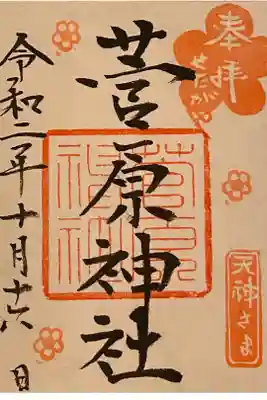 奉拝
せたがや
菅原神社
菅原
神社
天神さま
令和二年十月十六日